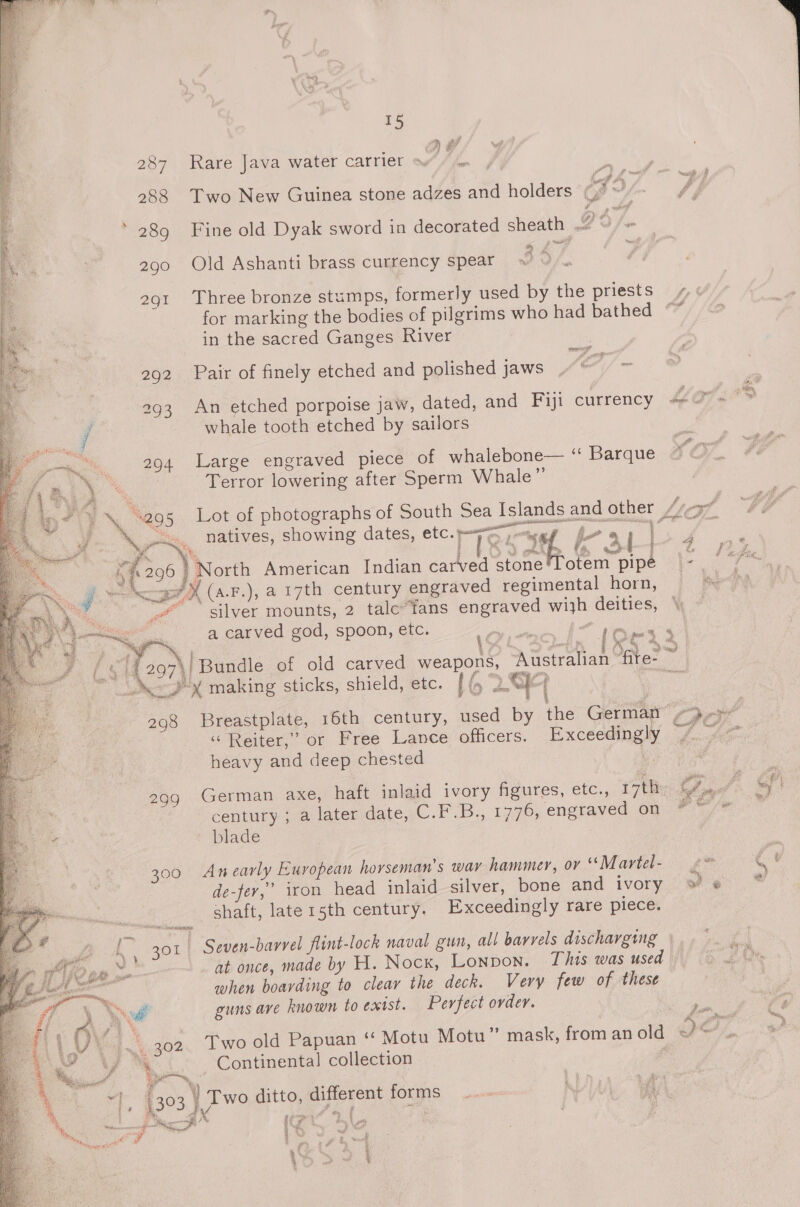 15
287 Rare Java water carrier
288 Two New Guinea stone adzes and holders
289 Fine old Dyak sword in decorated sheath
290 Old Ashanti brass currency spear
291 Three bronze stumps, formerly used by the priests
for marking the bodies of pilgrims who had bathed
in the sacred Ganges River
292 Pair of finely etched and polished jaws
293 An etched porpoise jaw, dated, and Fiji currency
whale tooth etched by sailors
294 Large engraved piece of whalebone— “ Barque
Terror lowering after Sperm Whale ”
295 Lot of photographs of South Sea Islands and other
natives, showing dates, etc.
296 North American Indian carved stone Totem pipe
(A.F.), a 17th century engraved regimental horn,
silver mounts, 2 talc fans engraved wiųh deities,
a carved god, spoon, etc.
297 Bundle of old carved weapons, Australian fire-
making sticks, shield, etc.
298 Breastplate, 16th century, used by the German
“ Reiter,” or Free Lance officers. Exceedingly
heavy and deep chested
299 German axe, haft inlaid ivory figures, etc., 17th
century ; a later date, C.F.B., 1776, engraved on
blade
300 An early European horseman's war hammer, or “Martel-
de-fer,” iron head inlaid silver, bone and ivory
shaft, late 15th century. Exceedingly rare piece.
301 Seven-barrel flint-lock naval gun, all barrels discharging
at once, made by H. Nock, London. This was used
when boarding to clear the deck. Very few of these
guns are known to exist. Perfect order.
302 Two old Papuan “ Motu Motu ” mask, from an old
Continental collection
303 Two ditto, different forms